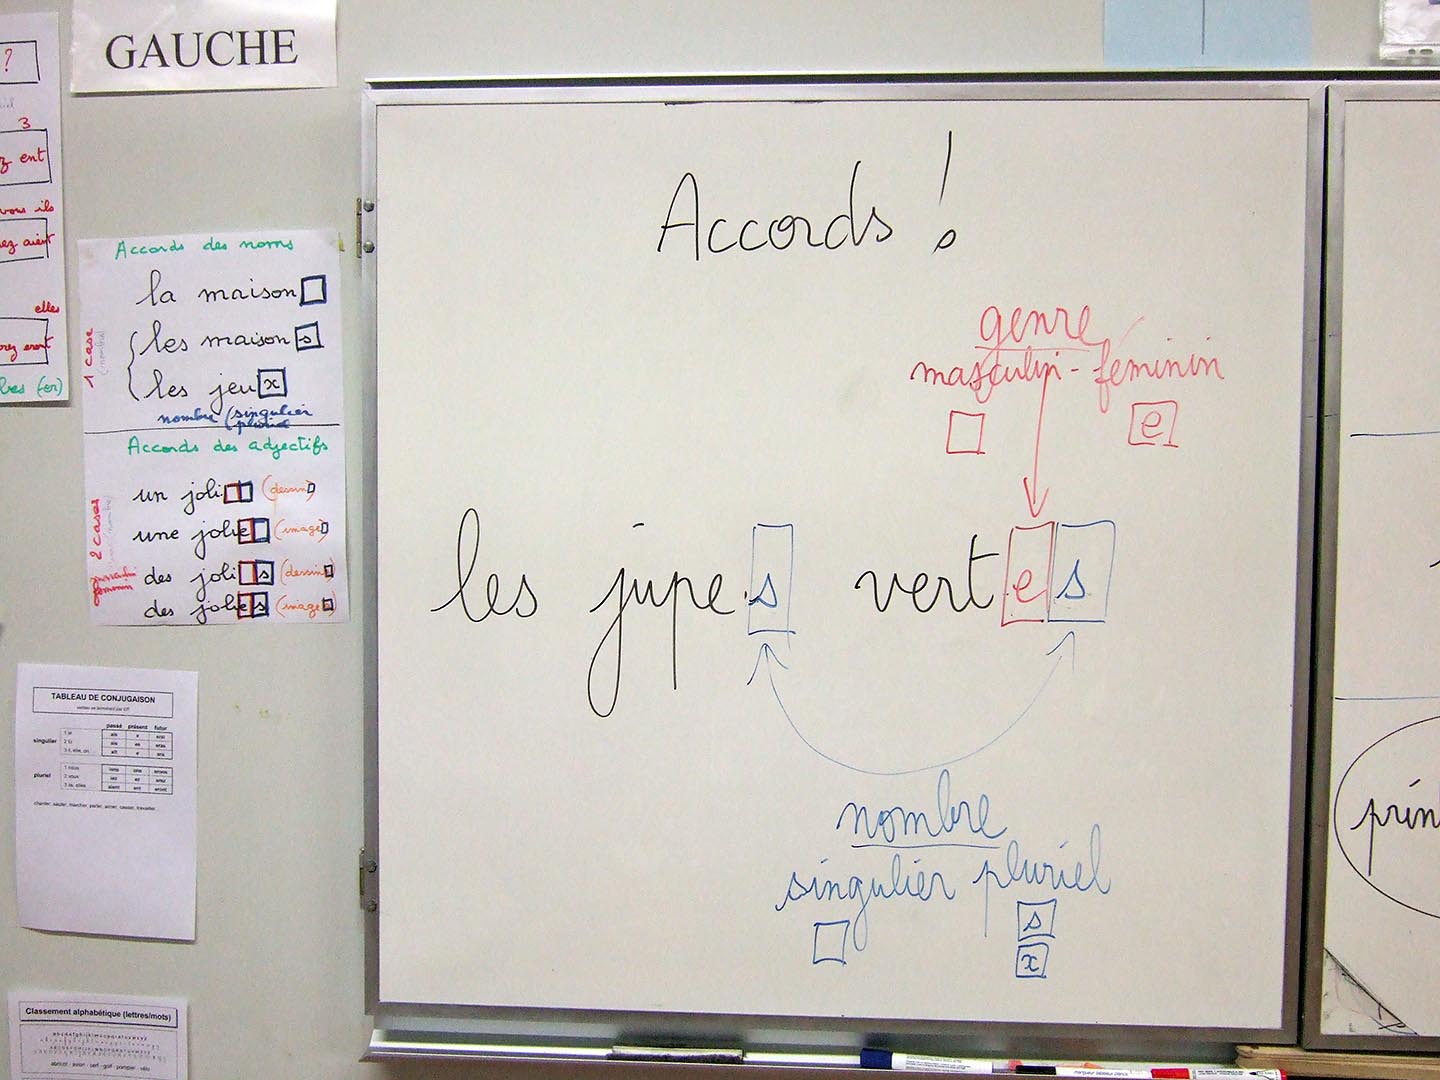 GAUCHE
?
3
ez ent
vous ils
ez aient
elles
rez eront
Accords des noms
la maison
les maison s
les jeu x
1 case
(nombre)
nombre (singulier
pluriel
Accords des adjectifs
un joli (dessin)
une jolie (image)
des joli s (dessins)
des jolies (images)
2 cases
masculin
féminin
TABLEAU DE CONJUGAISON
passé présent futur
singulier
1 je ais e erai
2 tu ais es eras
3 il, elle, on... ait e era
pluriel
1 nous ions ons erons
2 vous iez ez erez
3 ils, elles aient ent eront
chanter, sauter, marcher, parler, aimer, casser, travailler...
Classement alphabétique (lettres/mots)
abricot - avion - cerf - golf - pompier - vélo
Accords !
genre
masculin - féminin
e
les jupes vertes
nombre
singulier pluriel
s
x
prin